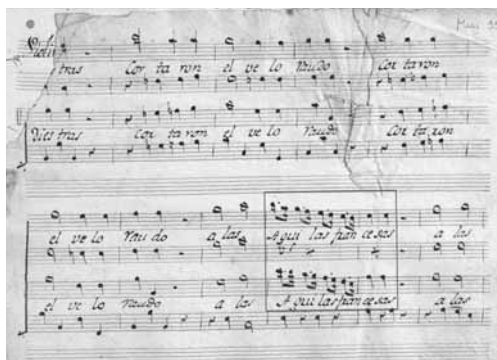 tris Cor ta ron el ve lo Raudo Cor ta ron
tris Cor ta ron el ve lo Raudo Cor ta ron
el ve lo Rau do a las A qui las fran ce sas a las
el ve lo Raudo a las A qui las fran ce sas a las